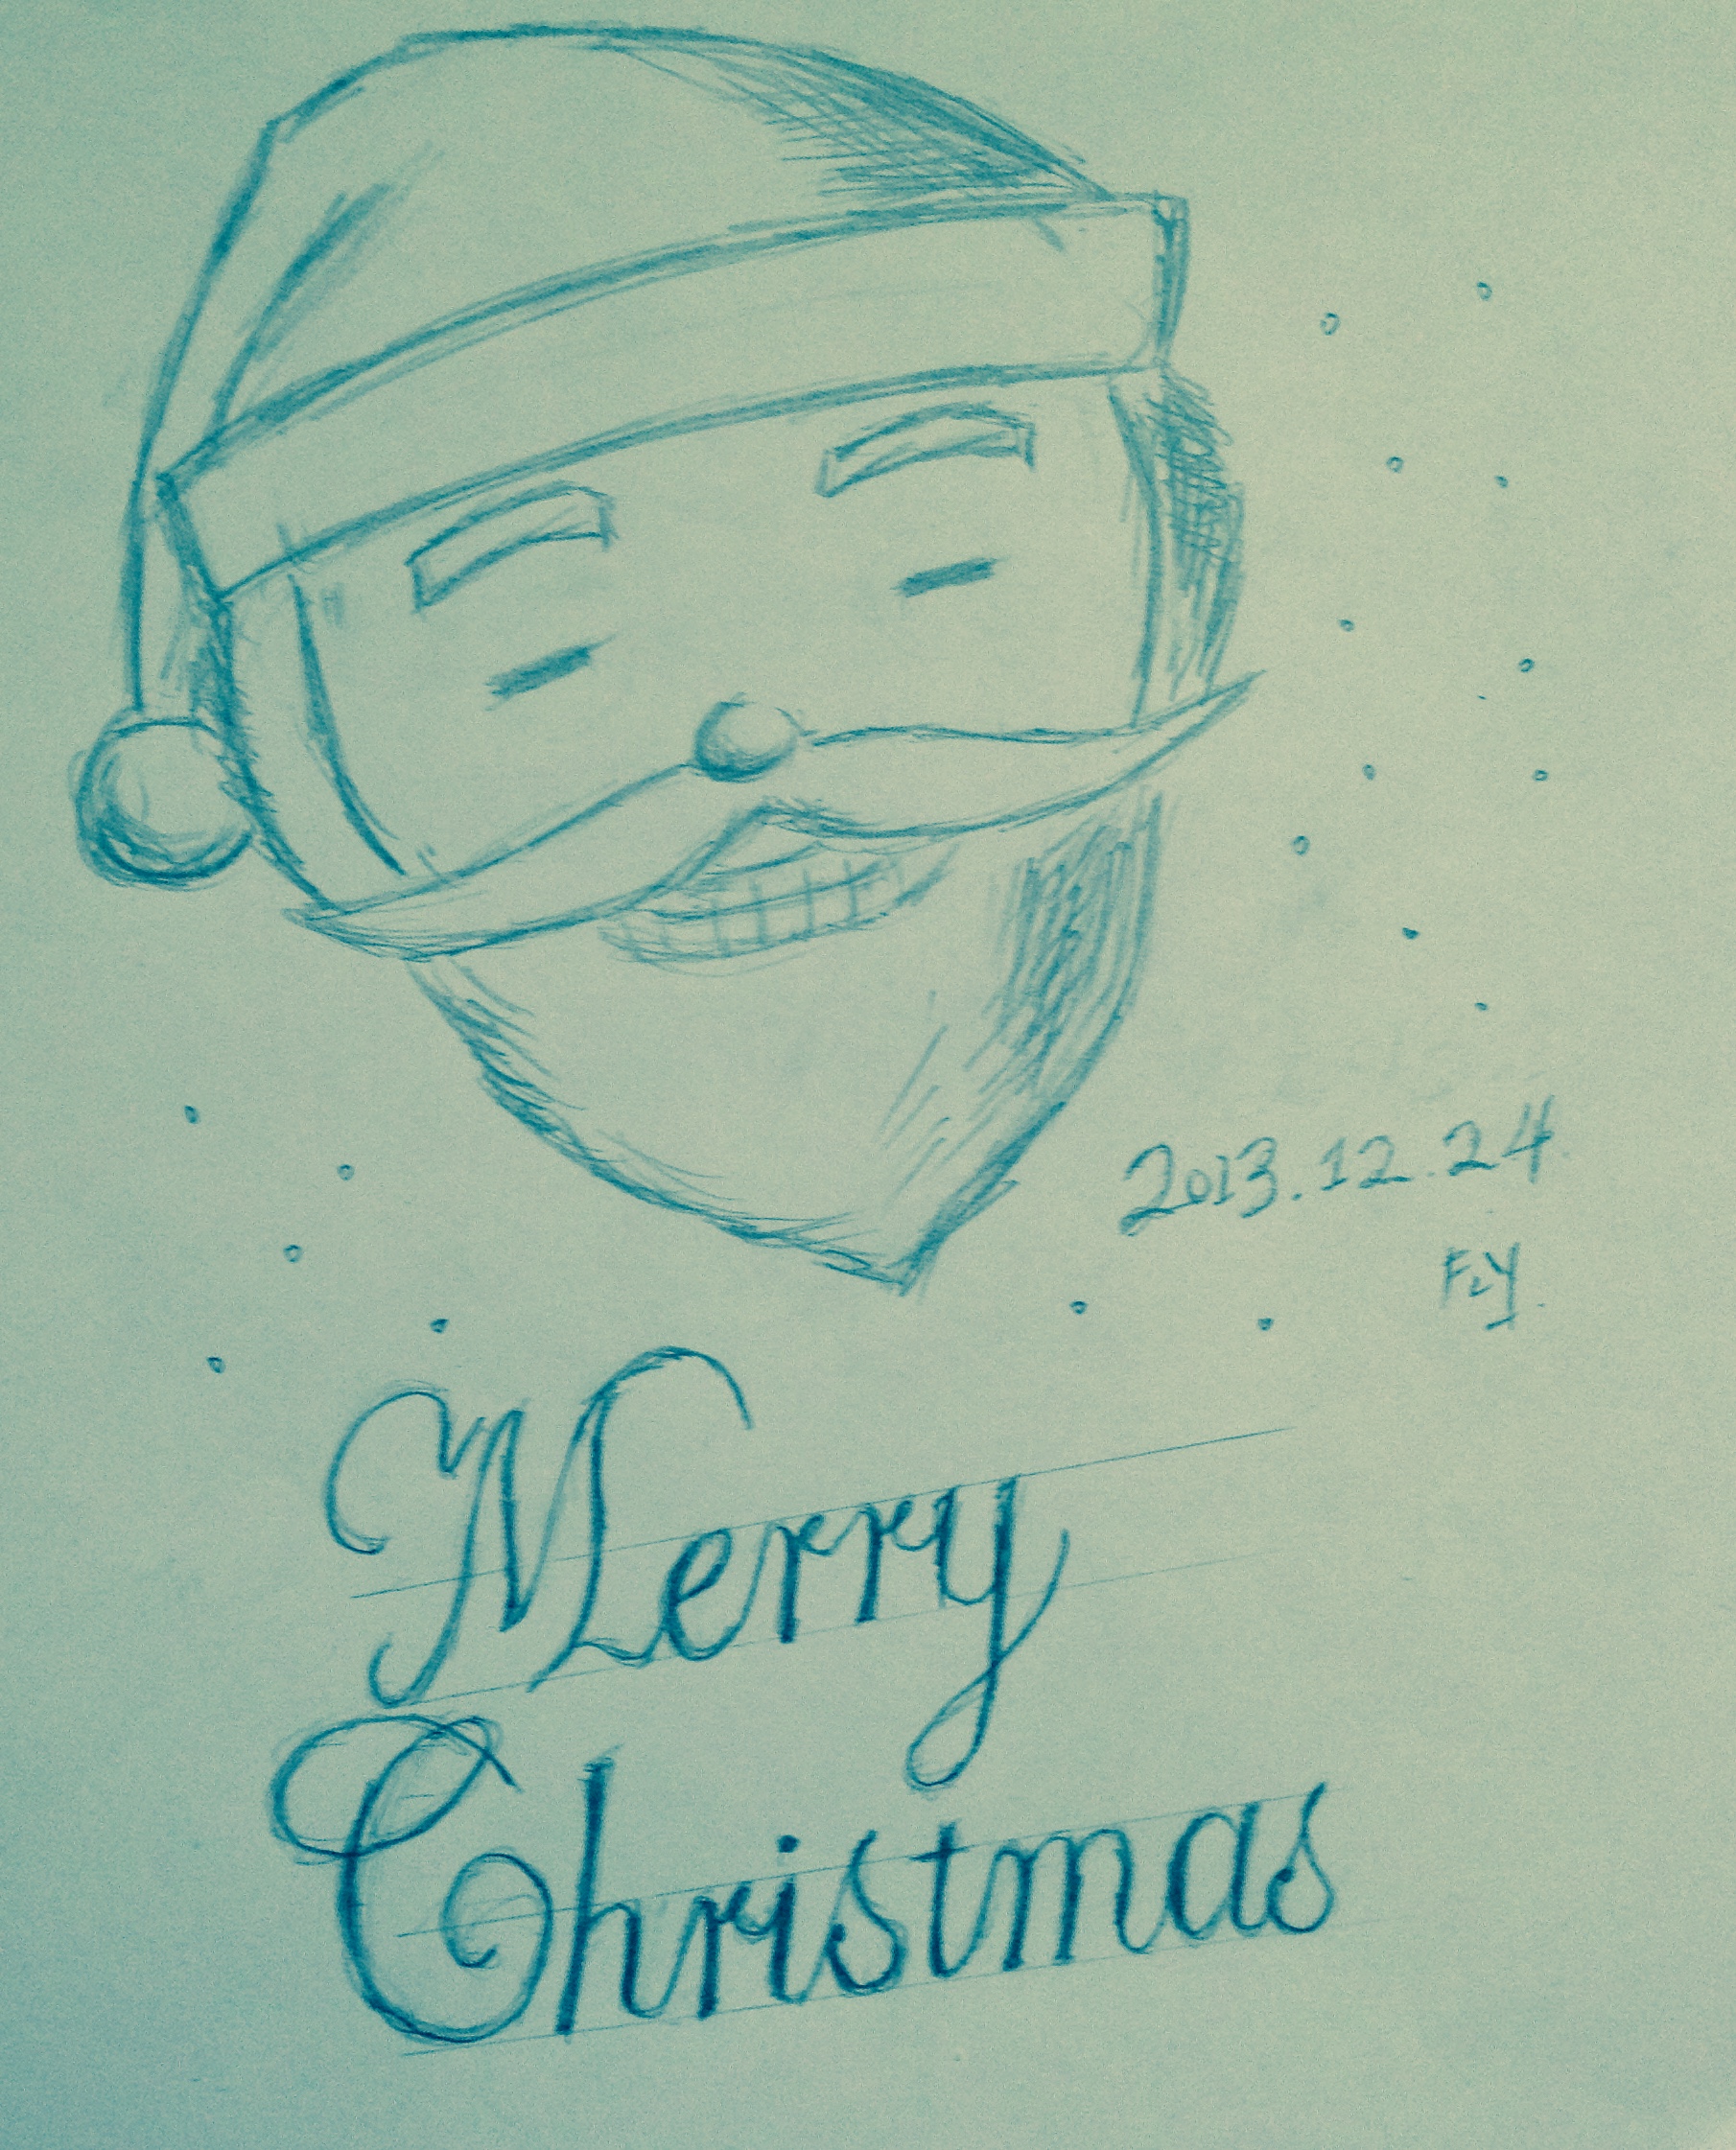 2013.12.24.
FLY.
Merry
Christmas